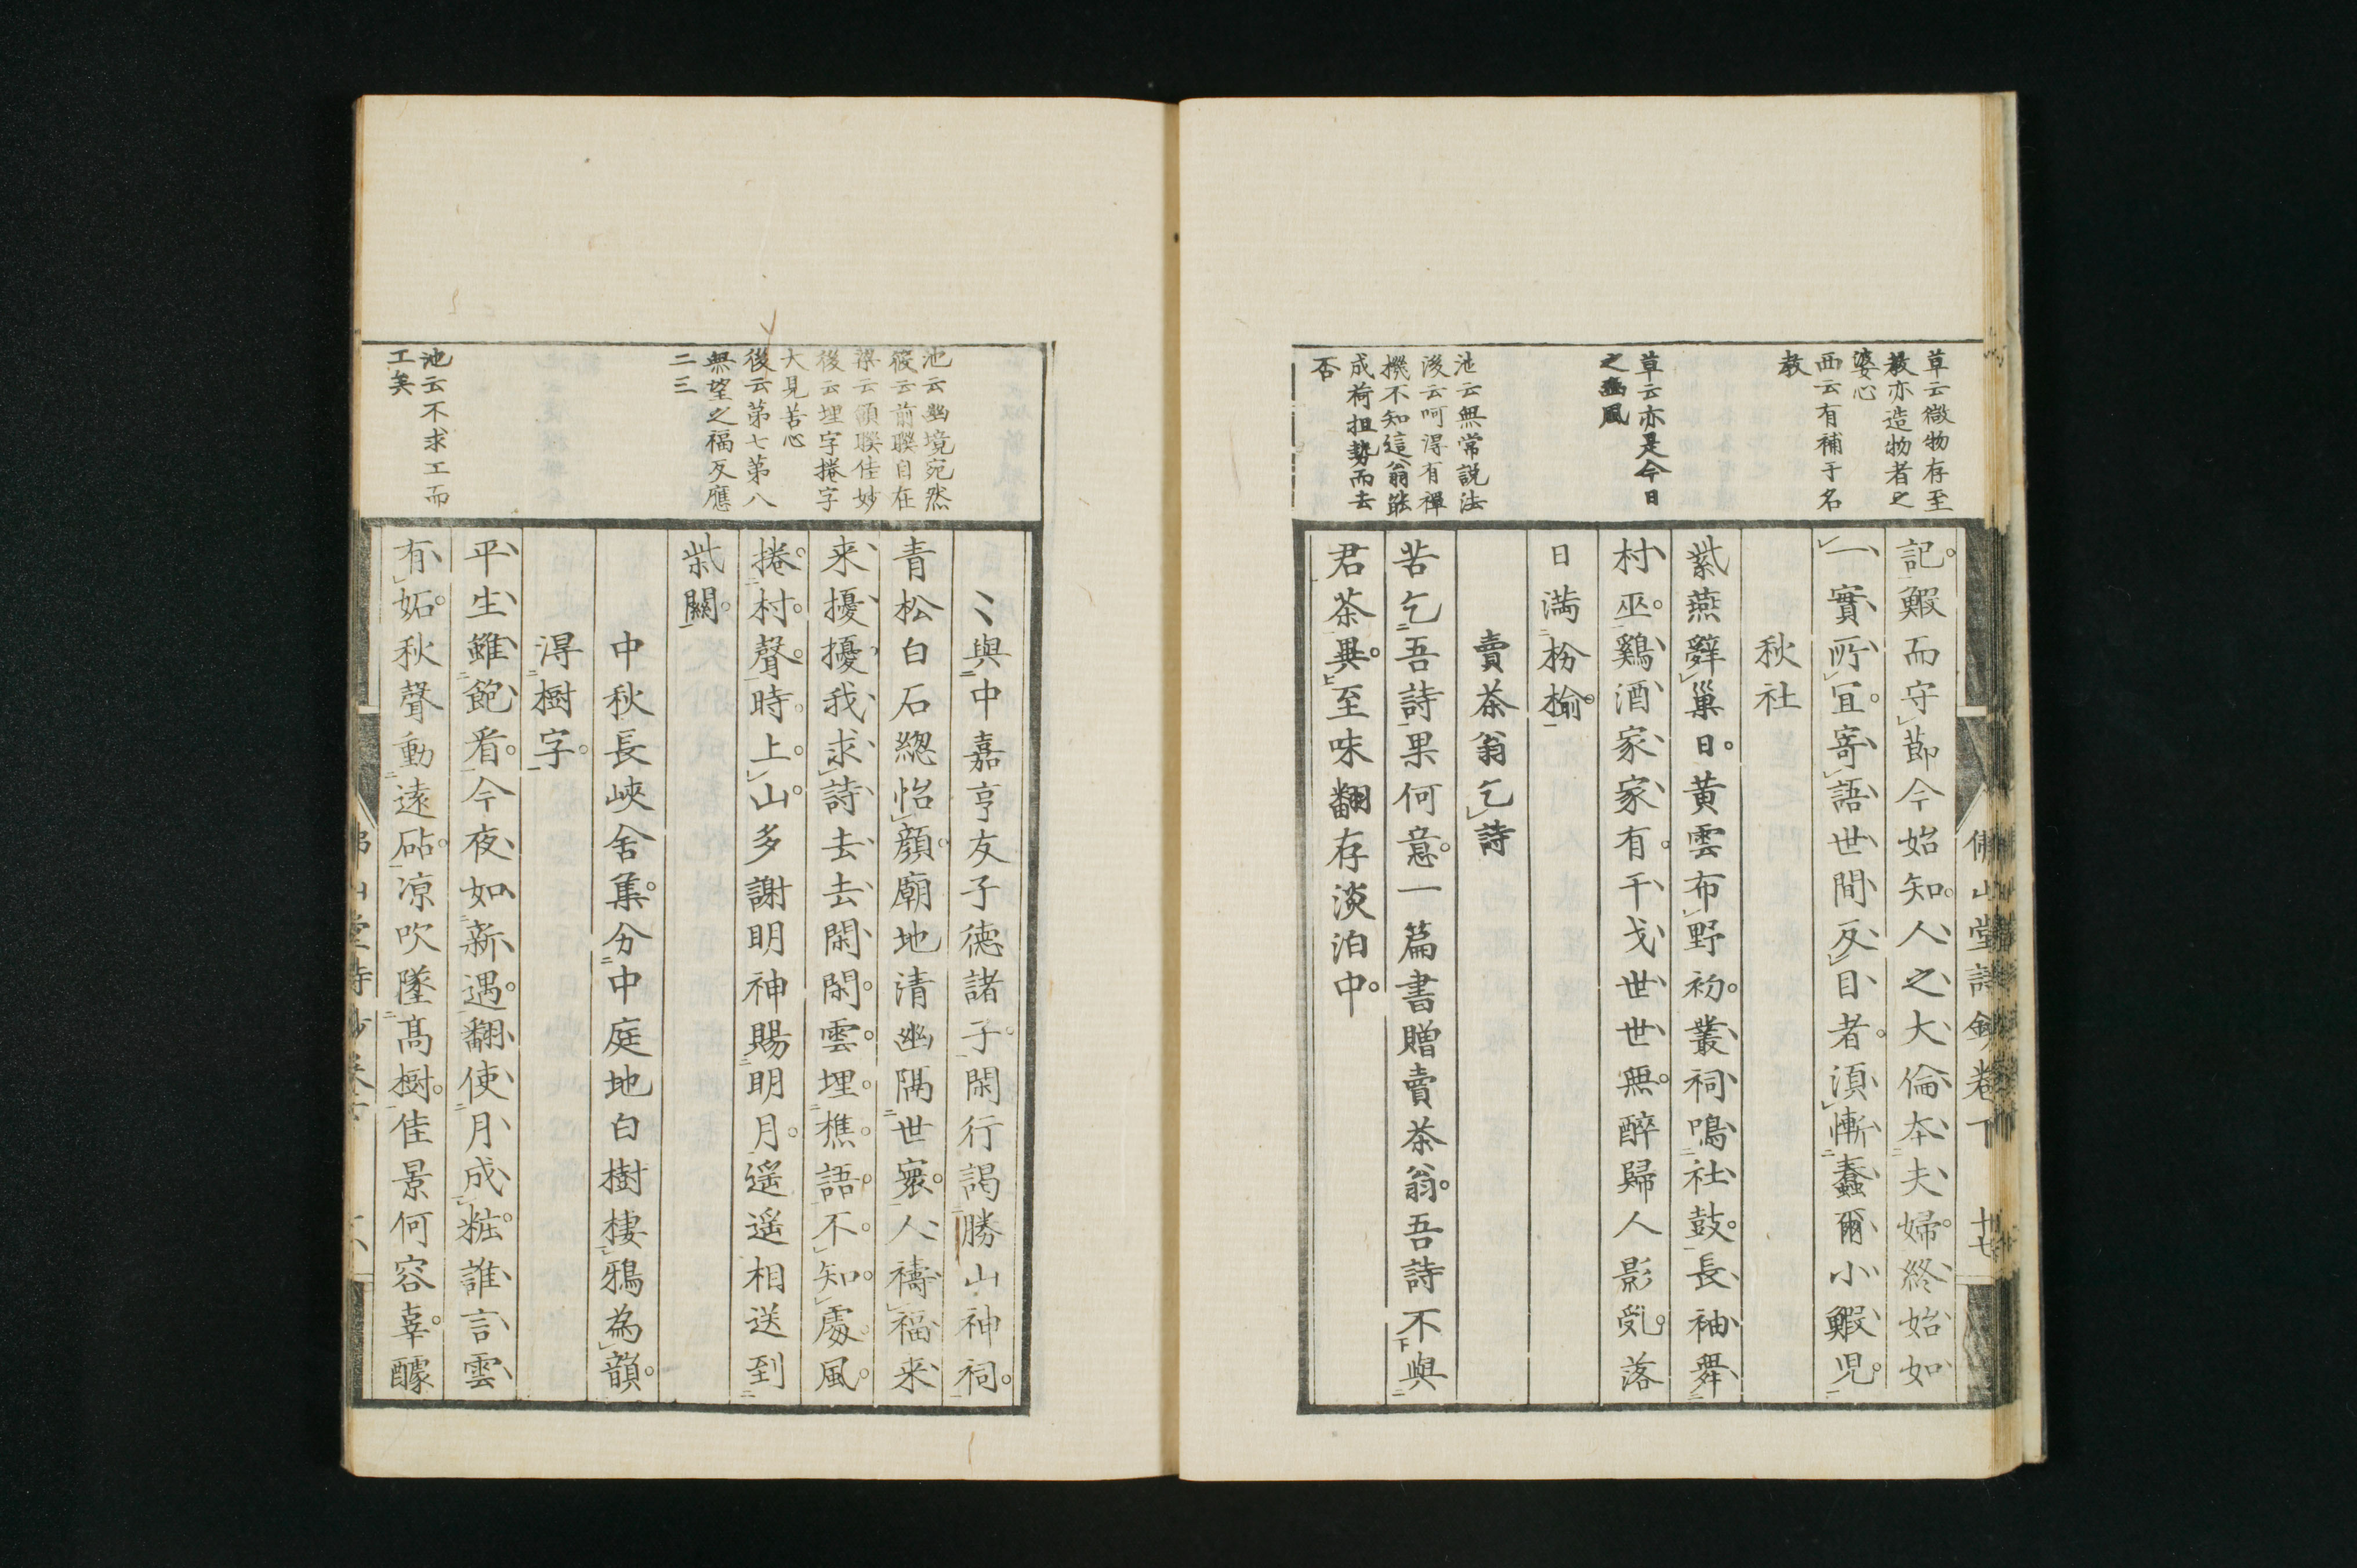 草云微物存至
教亦造物者之
婆心
西云有補于名
教
草云亦是今日
之豳風
池云無常説法
後云呵得有禪
機不知這翁能
成荷担勢而去
否
佛山堂詩鈔卷下 十七
記鰕而守節今始知人之大倫本夫婦終始如
一實所宜寄語世間反目者須慚蠢爾小鰕児
秋社
紫燕辭巢日黄雲布野初叢祠鳴社鼓長袖舞
村巫鷄酒家家有干戈世世無醉歸人影乱落
日満枌榆
賣茶翁乞詩
苦乞吾詩果何意一篇書贈賣茶翁吾詩不與
君茶異至味翻存淡泊中
池云幽境宛然
筱云前聯自在
梁云頷聯佳妙
後云埋字捲字
大見苦心
後云第七第八
無望之福反應
二三
池云不求工而
工美
〻與中嘉亨友子德諸子閑行謁勝山神祠
青松白石緫怡顔廟地清幽隔世寰人禱福来
来擾擾我求詩去去閑閑雲埋樵語不知處風
捲村聲時上山多謝明神賜明月遥遥相送到
柴關
中秋長峽舍集分中庭地白樹棲鴉為韻
得樹字
平生雖飽看今夜如新遇翻使月成粧誰言雲
有妬秋聲動遠砧凉吹墜高樹佳景何容辜醵